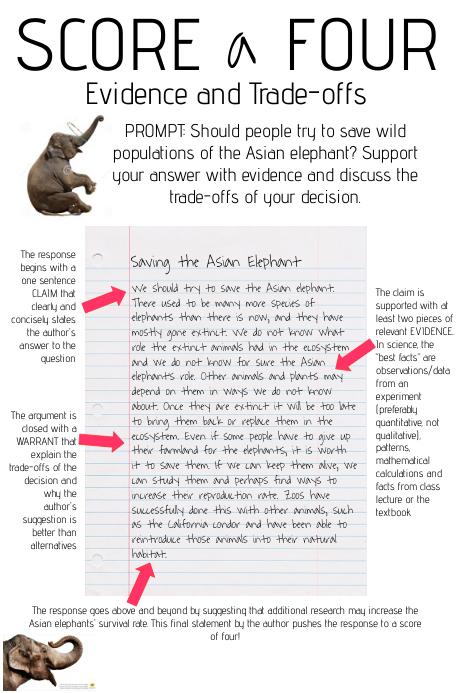 SCORE a FOUR
Evidence and Trade-offs
PROMPT: Should people try to save wild
populations of the Asian elephant? Support
your answer with evidence and discuss the
trade-offs of your decision.
The response
begins with a
one sentence
CLAIM that
clearly and
concisely states
the author's
answer to the
question
The argument is
closed with a
WARRANT that
explain the
trade-offs of the
decision and
why the
author's
suggestion is
better than
alternatives
Saving the Asian Elephant
We should try to save the Asian elephant.
There used to be many more species of
elephants than there is now, and they have
mostly gone extinct. We do not know what
role the extinct animals had in the ecosystem
and we do not know for sure the Asian
elephant's role. Other animals and plants may
depend on them in ways we do not know
about. Once they are extinct it will be too late
to bring them back or replace them in the
ecosystem. Even if some people have to give up
their farmland for the elephants, it is worth
it to save them. If we can keep them alive, we
can study them and perhaps find ways to
increase their reproduction rate. Zoos have
successfully done this with other animals, such
as the California condor and have been able to
reintroduce those animals into their natural
habitat.
The claim is
supported with at
least two pieces of
relevant EVIDENCE.
In science, the
"best facts" are
observations/data
from an
experiment
(preferably
quantitative, not
qualitative),
patterns,
mathematical
calculations and
facts from class
lecture or the
textbook
The response goes above and beyond by suggesting that additional research may increase the
Asian elephants' survival rate. This final statement by the author pushes the response to a score
of four!